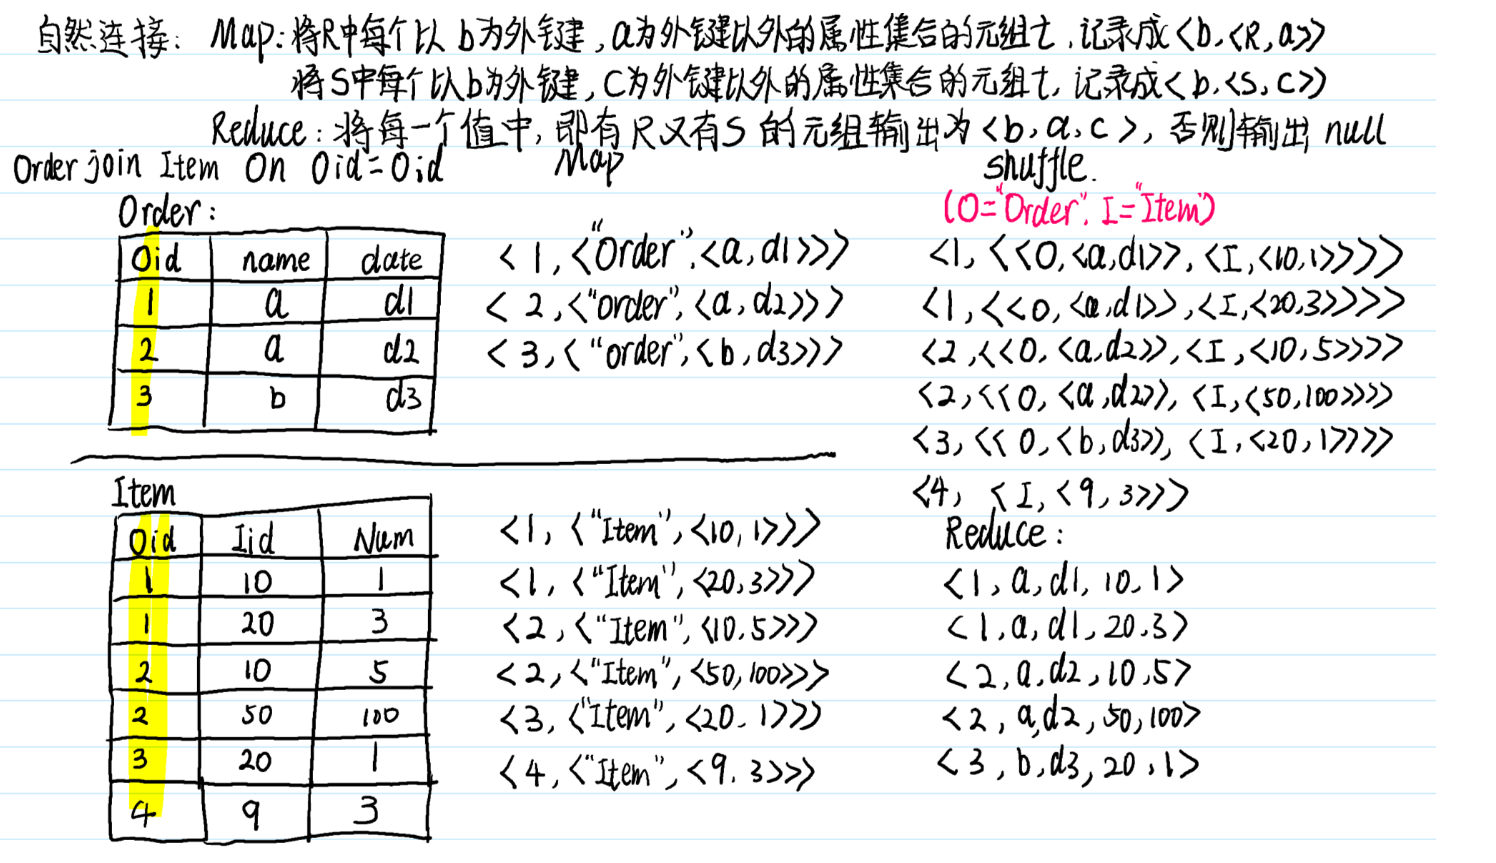 自然连接: Map: 将R中每个以b为外键,a为外键以外的属性集合的元组t,记录成<b,<R,a>>
将S中每个以b为外键,C为外键以外的属性集合的元组t,记录成<b,<S,C>>
Reduce: 将每一个值中,即有R又有S的元组输出为<b,a,c>,否则输出null
Order join Item On Oid=Oid
Map
shuffle.
(O="Order", I="Item")
Order:
Oid name date
1 a d1
2 a d2
3 b d3
<1,<"Order",<a,d1>>>
<2,<"order",<a,d2>>>
<3,<"order",<b,d3>>>
<1,<<O,<a,d1>>,<I,<10,1>>>>>
<1,<<O,<a,d1>>,<I,<20,3>>>>
<2,<<O,<a,d2>>,<I,<10,5>>>>
<2,<<O,<a,d2>>,<I,<50,100>>>>
<3,<<O,<b,d3>>,<I,<20,1>>>>
<4,<I,<9,3>>>
Item
Oid Iid Num
1 10 1
1 20 3
2 10 5
2 50 100
3 20 1
4 9 3
<1,<"Item",<10,1>>>
<1,<"Item",<20,3>>>
<2,<"Item",<10.5>>>
<2,<"Item",<50,100>>>
<3,<"Item",<20.1>>>
<4,<"Item",<9.3>>>
Reduce:
<1,a,d1,10.1>
<1,a,d1,20.3>
<2,a,d2,10,5>
<2,a,d2,50,100>
<3,b,d3,20,1>